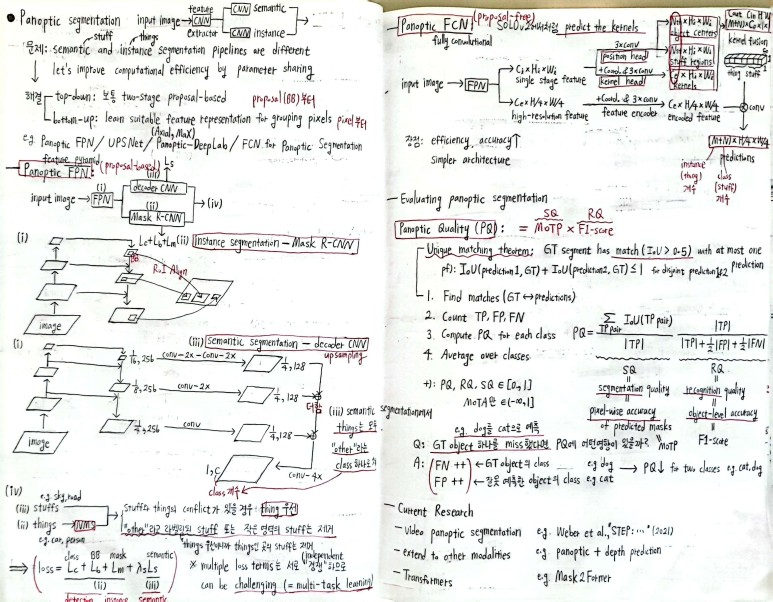 Panoptic segmentation input image → feature CNN extractor → CNN semantic
CNN instance
stuff things
문제: semantic and instance segmentation pipelines are different
let's improve computational efficiency by parameter sharing
해결 top-down: 보통 two-stage proposal-based proposal(BB)부터
bottom-up: learn suitable feature representation for grouping pixels pixel부터
(Axial, MaX)
e.g. Panoptic FPN / UPSNet / Panoptic-DeepLab / FCN for Panoptic Segmentation
feature pyramid
Panoptic FPN: (proposal-based)
(iii) Ls
decoder CNN
input image → (i) FPN → (iv)
(ii)
Mask R-CNN
Lc+Lb+Lm
(i)
(ii) Instance segmentation – Mask R-CNN
BB
R.I Align
image
(i)
(iii) Semantic segmentation – decoder CNN
upsampling
1/16, 256 conv-2x-conv-2x 1/4, 128
1/8, 256 conv-2x 1/4, 128
더함
1/4, 256 conv 1/4, 128
(iii) semantic segmentation에서
things는 모두
"other"라는
class 하나로
image
1, C
conv-4x
class 개수
(iv)
e.g. sky, road
(iii) stuffs
(ii) things → NMS
e.g. car, person
stuff와 things의 conflict가 있을 경우: thing 우선
"other"라고 라벨링된 stuff 또는 작은 영역의 stuff는 제거
class BB mask semantic
loss = Lc + Lb + Lm + λsLs
(ii) (iii)
detection instance semantic
※ multiple loss terms는 서로 "경쟁"하므로
(independent
can be challenging (= multi-task learning)
Panoptic FCN: (proposal-free) SOLOv2처럼 predict the kernels
fully convolutional
input image → FPN
Ci×Hi×Wi
single stage feature
3×conv
position head
+Coord. & 3×conv
kernel head
No×Hi×Wi
object centers
Ns×Hi×Wi
stuff regions
Ce×Hi×Wi
kernels
kernel fusion
thing stuff
conv
Ce×H/4×W/4
high-resolution feature
+Coord. & 3×conv
feature encoder
Ce×H/4×W/4
encoded feature
장점: efficiency, accuracy↑
simpler architecture
(M+N)×H/4×W/4
predictions
instance
(thing)
개수
class
(stuff)
개수
Evaluating panoptic segmentation
Panoptic Quality (PQ): = SQ MoTP × RQ F1-score
Unique matching theorem: GT segment has match (IoU > 0.5) with at most one
prediction
pf): IoU(prediction1, GT) + IoU(prediction2, GT) ≤ 1 for disjoint prediction1&2
1. Find matches (GT ↔ predictions)
2. Count TP, FP, FN
3. Compute PQ for each class
4. Average over classes
PQ = ∑TP pair IoU(TP pair) / |TP| × |TP| / |TP| + ½|FP| + ½|FN|
SQ RQ
segmentation quality recognition quality
pixel-wise accuracy object-level accuracy
of predicted masks
MoTP F1-score
+): PQ, RQ, SQ ∈ [0,1]
MoTA만 ∈ (-∞,1]
e.g. dog를 cat으로 예측
Q: GT object 하나를 miss했다면 PQ에 어떤 영향이 있을까?
A: FN ++ ← GT object의 class e.g dog → PQ↓ for two classes e.g. cat, dog
FP ++ ← 잘못 예측한 object의 class e.g cat
Current Research
– video panoptic segmentation e.g. Weber et al., "STEP: ..." (2021)
– extend to other modalities e.g. panoptic + depth prediction
– Transformers e.g. Mask2Former